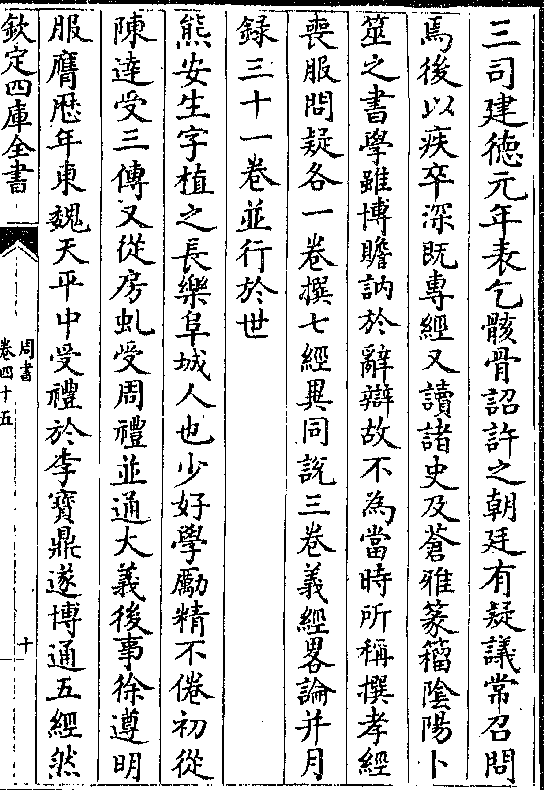 三司建德元年表乞骸骨詔許之朝廷有疑議常召問
焉後以疾卒深既專經又讀諸史及蒼雅篆籀陰陽卜
筮之書學雖博贍訥於辭辯故不為當時所稱撰孝經
喪服問疑各一卷撰七經異同説三卷義經畧論并月
録三十一卷並行於世
熊安生字植之長樂阜城人也少好學勵精不倦初從
陳達受三傳又從房虬受周禮並通大義後事徐遵明
服膺歴年東魏天平中受禮於李寶鼎遂博通五經然
欽定四庫全書
周書
卷四十五
十